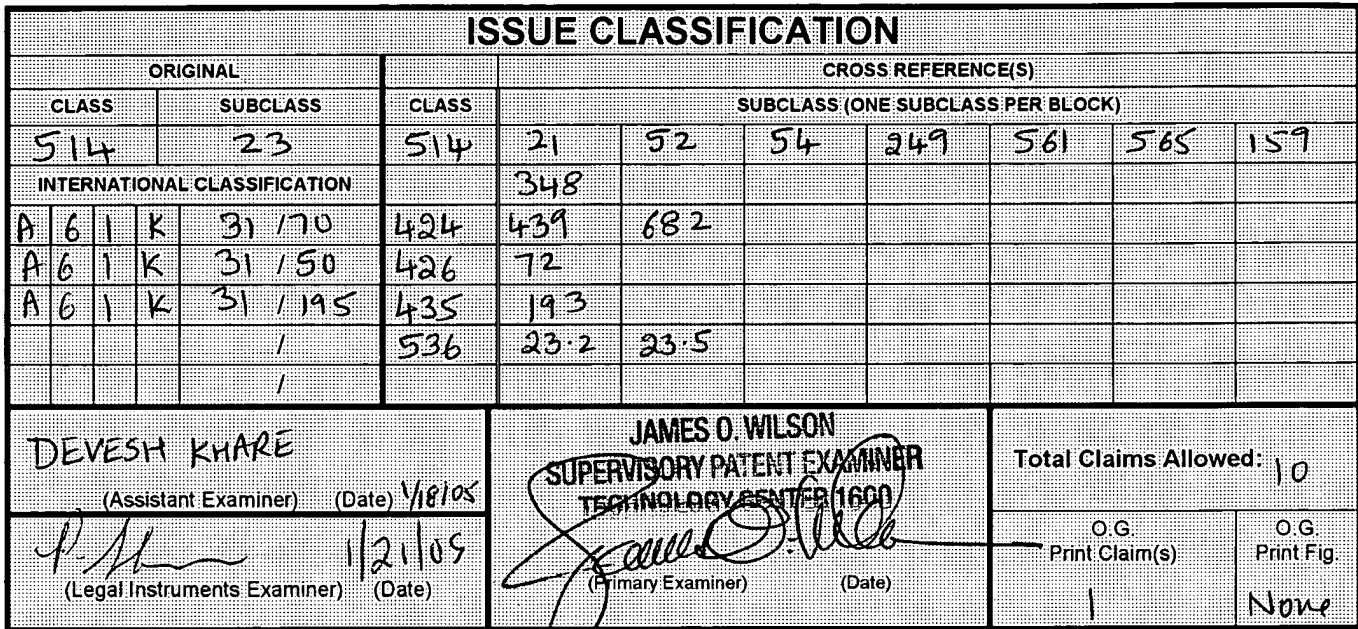 ISSUE CLASSIFICATION
ORIGINAL CROSS REFERENCE(S)
CLASS SUBCLASS CLASS SUBCLASS (ONE SUBCLASS PER BLOCK)
514 23 514 21 52 54 249 561 565 159
INTERNATIONAL CLASSIFICATION 348
A 6 1 K 31 / 70 424 439 682
A 6 1 K 31 / 50 426 72
A 6 1 K 31 / 195 435 193
/ 536 23.2 23.5
/
DEVESH KHARE
(Assistant Examiner) (Date) 1/18/05
1/21/05
(Legal Instruments Examiner) (Date)
JAMES O. WILSON
SUPERVISORY PATENT EXAMINER
TECHNOLOGY CENTER 1600
(Primary Examiner) (Date)
Total Claims Allowed: 10
O.G. O.G.
Print Claim(s) Print Fig.
1 None